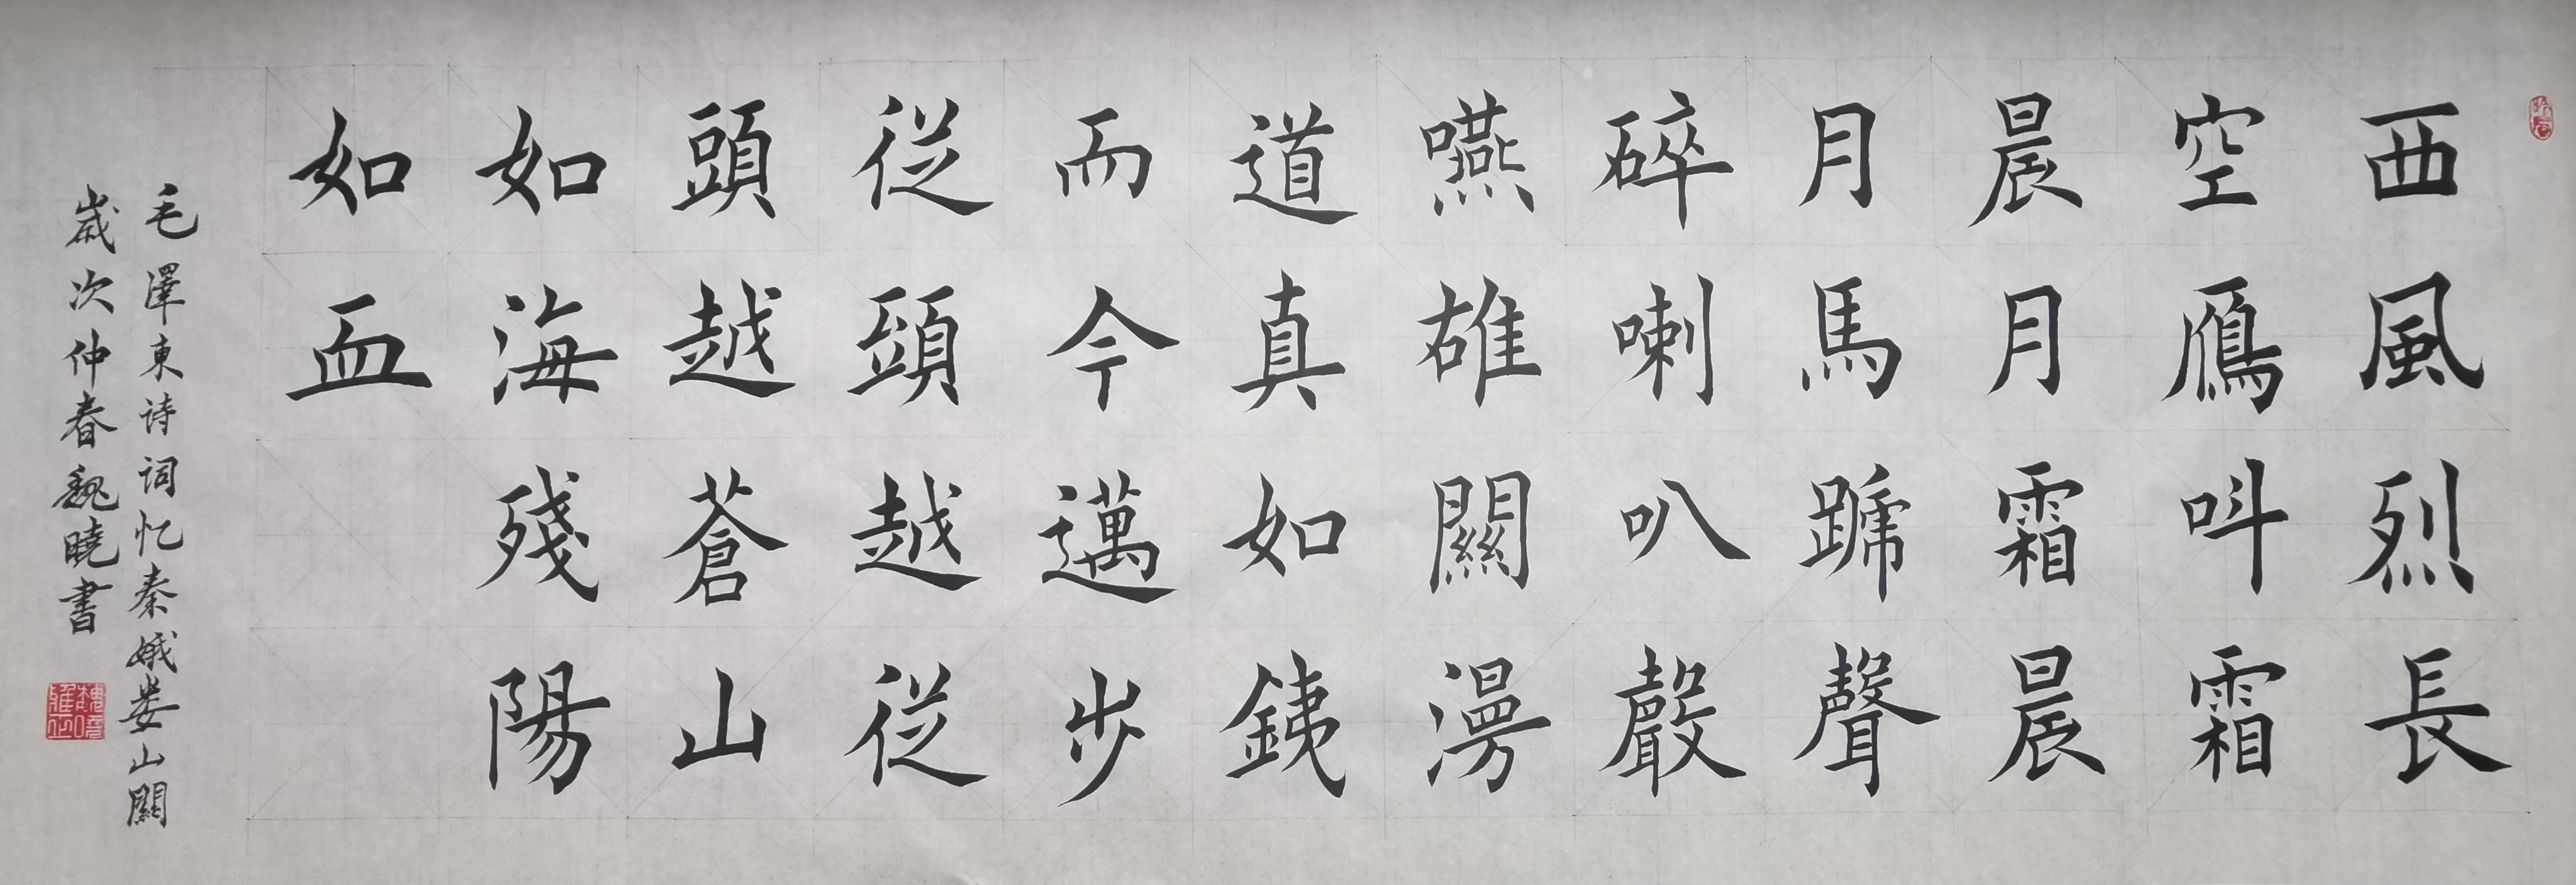 西風烈長
空鴈叫霜
晨月霜晨
月馬蹄聲
碎喇叭聲
嚥雄關漫
道真如銕
而今邁步
従頭越従
頭越蒼山
如海殘陽
如血
毛澤東诗词忆秦娥娄山關
歲次仲春魏曉書